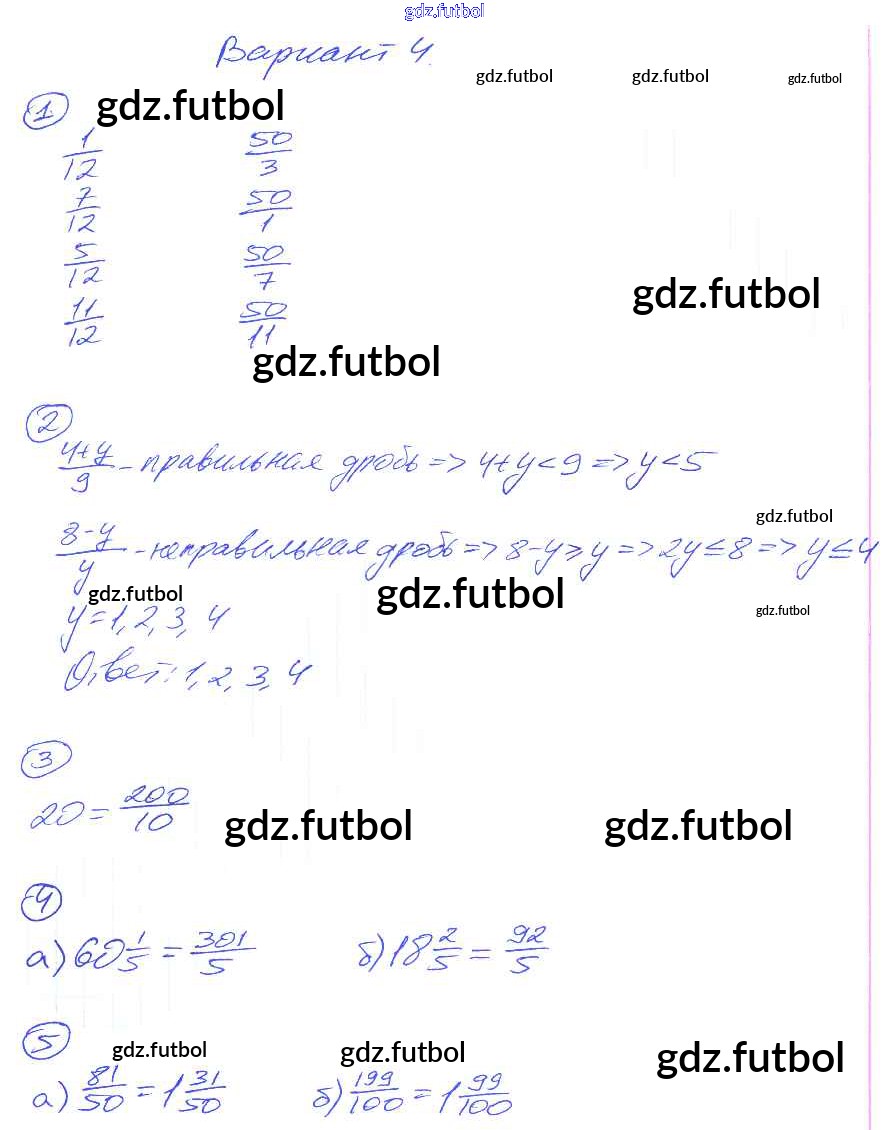 gdz.futbol
Вариант 4.
gdz.futbol gdz.futbol gdz.futbol
1 gdz.futbol
1/12 50/3
7/12 50/1
5/12 50/7
gdz.futbol
11/12 50/11
gdz.futbol
2
(4+y)/9 - правильная дробь => 4+y<9 => y<5
gdz.futbol
(8-y)/y - неправильная дробь => 8-y≥y => 2y≤8 => y≤4
gdz.futbol gdz.futbol gdz.futbol
y=1, 2, 3, 4
Ответ: 1, 2, 3, 4
3
20 = 200/10 gdz.futbol gdz.futbol
4
а) 60 1/5 = 301/5 б) 18 2/5 = 92/5
5 gdz.futbol gdz.futbol gdz.futbol
а) 81/50 = 1 31/50 б) 199/100 = 1 99/100